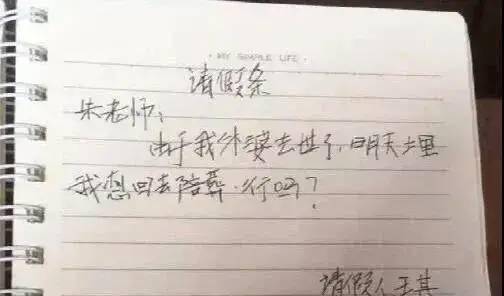 MY SIMPLE LIFE
请假条
朱老师:
由于我外婆去世了,明天土埋
我想回去陪葬.行吗?
请假人王其